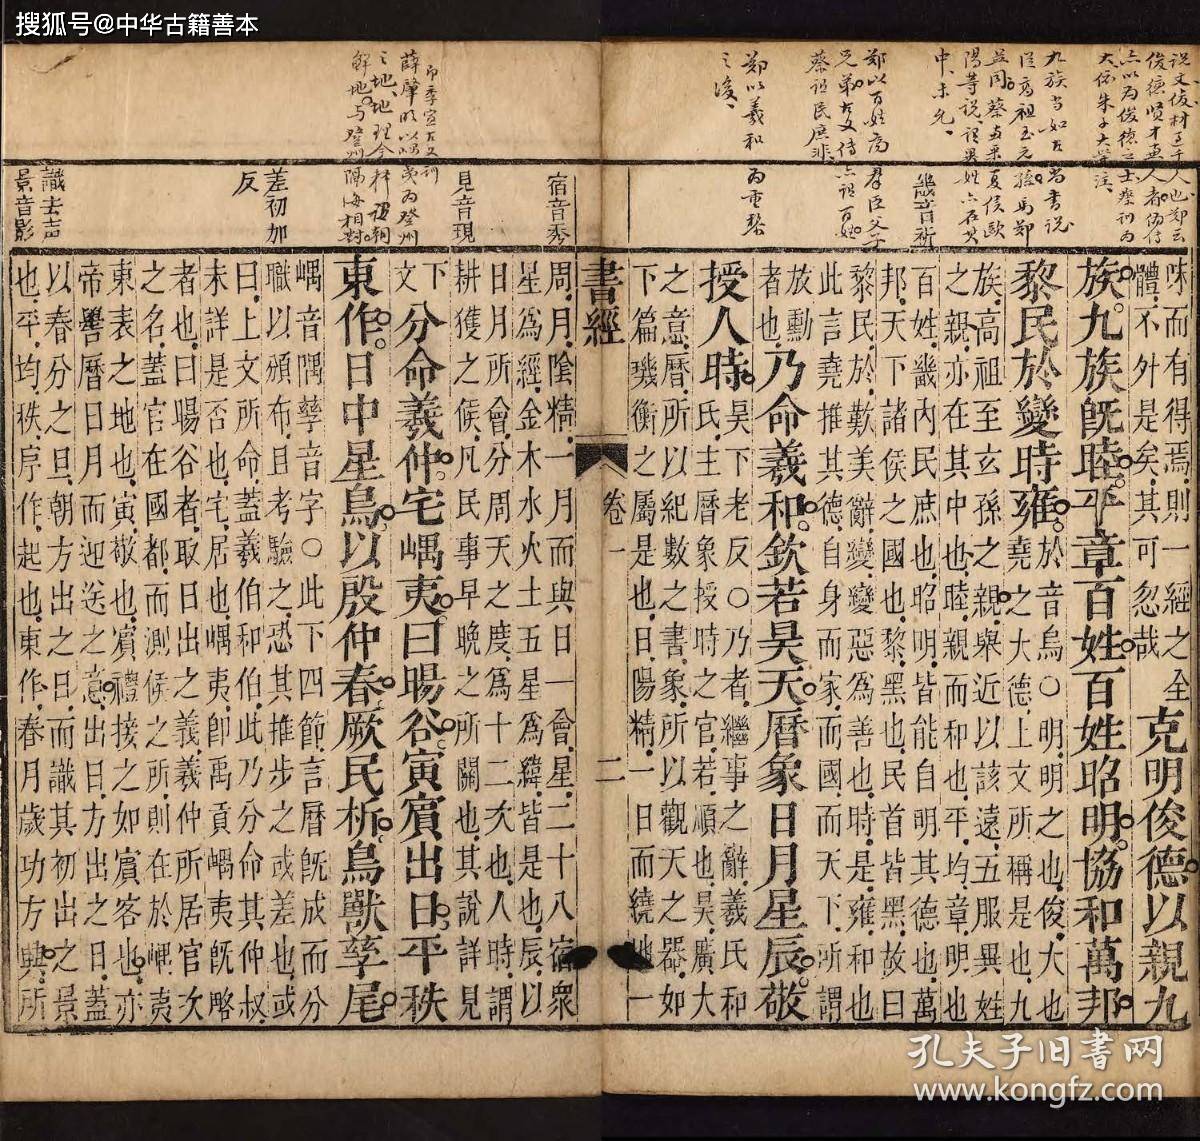 搜狐号@中华古籍善本
說文俊材過千人也鄭云
俊德賢才兼人者偽傳
亦以為俊德之士蔡訓為
大依朱子大學注
九族當如古尚書說
從高祖至元孫馬鄭
並同蔡兼采夏侯歐
陽等說謂異姓亦在其
中未允
鄭以百姓為群臣父子
兄弟古文傳亦謂百姓
蔡謂民庶非
鄭以羲和為重黎
之後
季宣古文訓
薛肇明以嵎夷為登州
之地地理今釋謂朝
鮮地與登州隔海相對
畿音祈
宿音秀
見音現
差初加
反
識去声
景音影
味而有得焉則一經之全
體不外是矣其可忽哉
克明俊德以親九
族九族旣睦平章百姓百姓昭明協和萬邦
黎民於變時雍
於音烏○明明之也俊大也
堯之大德上文所稱是也九
族高祖至玄孫之親舉近以該遠五服異姓
之親亦在其中也睦親而和也平均章明也
百姓畿內民庶也昭明皆能自明其德也萬
邦天下諸侯之國也黎黑也民首皆黑故曰
黎民於歎美辭變變惡爲善也時是雍和也
此言堯推其德自身而家而國而天下所謂
放勳
者也
乃命羲和欽若昊天曆象日月星辰敬
授人時
昊下老反○乃者繼事之辭羲氏和
氏主曆象授時之官若順也昊廣大
之意曆所以紀數之書象所以觀天之器如
下篇璣衡之屬是也日陽精一日而繞地一
書經
卷一
二
周月陰精一月而與日一會星二十八宿衆
星爲經金木水火土五星爲緯皆是也辰以
日月所會分周天之度爲十二次也人時謂
耕獲之候凡民事早晚之所關也其說詳見
下
文
分命羲仲宅嵎夷曰暘谷寅賓出日平秩
東作日中星鳥以殷仲春厥民析鳥獸孳尾
嵎音隅孳音字○此下四節言曆旣成而分
職以頒布且考驗之恐其推步之或差也或
曰上文所命蓋羲伯和伯此乃分命其仲叔
未詳是否也宅居也嵎夷卽禹貢嵎夷旣略
者也曰暘谷者取日出之義羲仲所居官次
之名蓋官在國都而測候之所則在於嵎夷
東表之地也寅敬也賓禮接之如賓客也亦
帝嚳曆日月而迎送之意出日方出之日蓋
以春分之旦朝方出之日而識其初出之景
也平均秩序作起也東作春月歲功方興所
孔夫子旧书网
www.kongfz.com